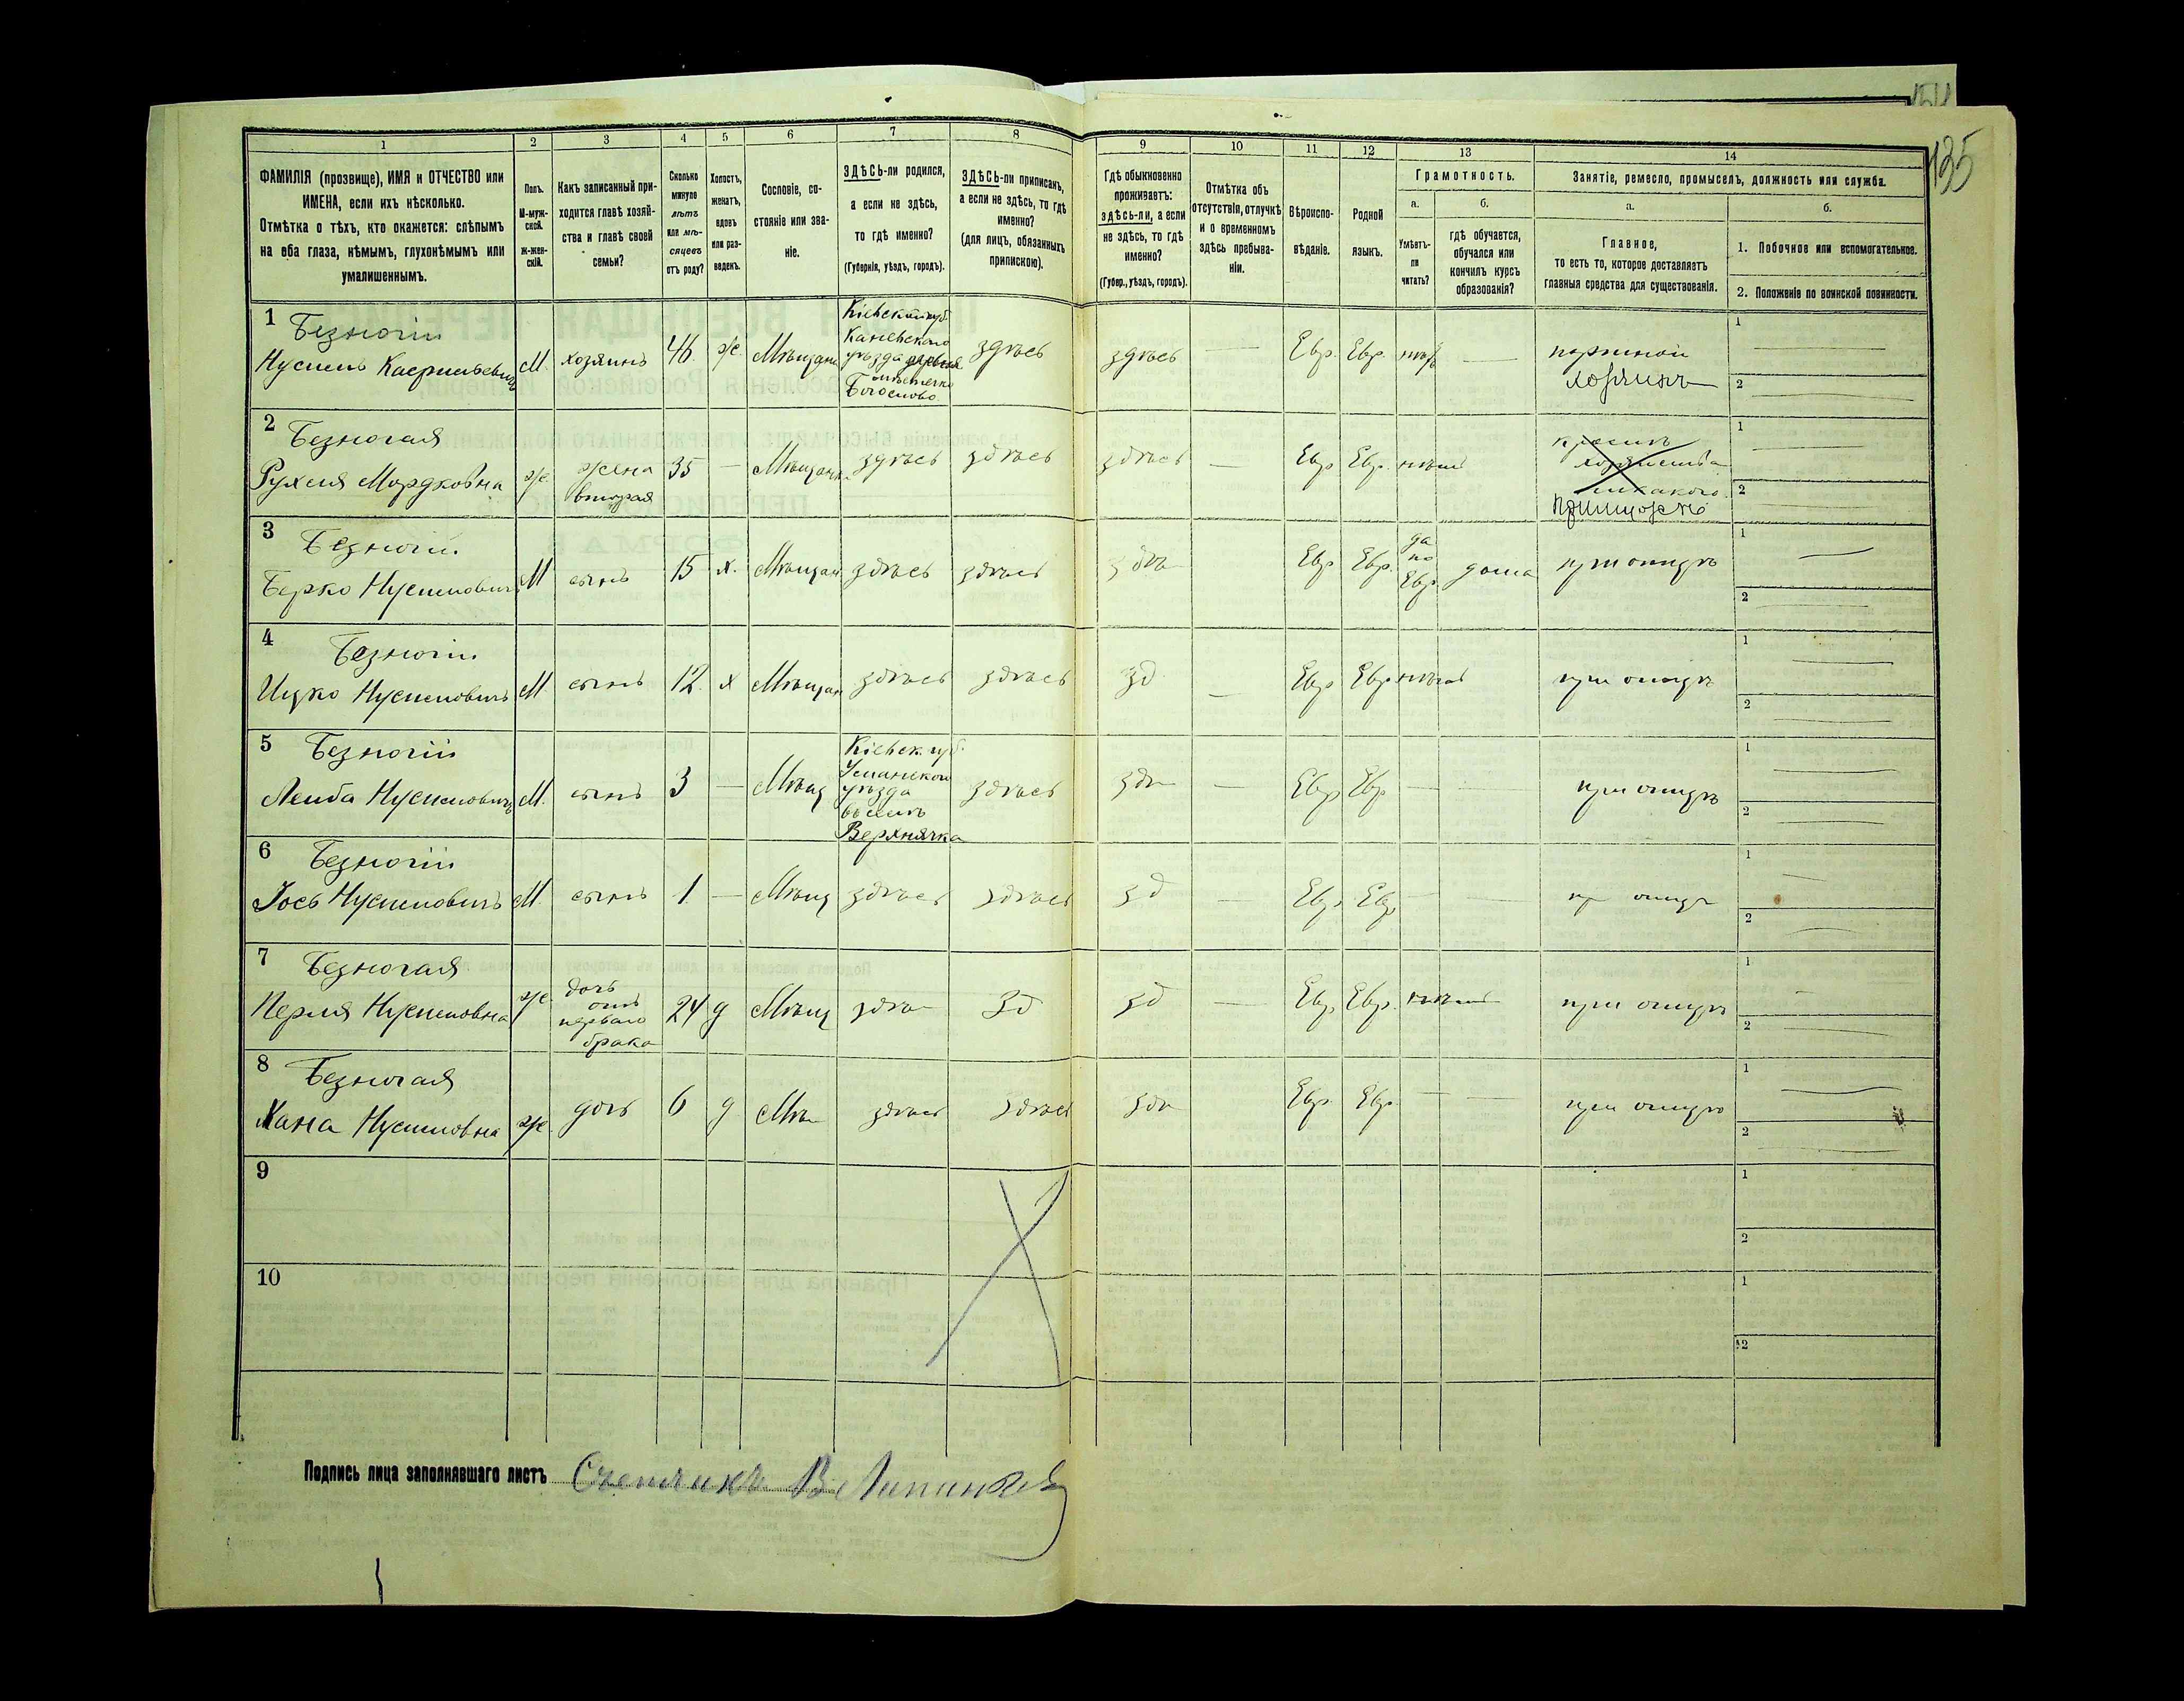 135
1
2
3
4
5
6
7
8
9
10
11
12
13
14
ФАМИЛІЯ (прозвище), ИМЯ и ОТЧЕСТВО или
ИМЕНА, если ихъ нѣсколько.
Отмѣтка о тѣхъ, кто окажется: слѣпымъ
на оба глаза, нѣмымъ, глухонѣмымъ или
умалишеннымъ.
Полъ.
М-муж-
ской.
Ж-жен-
скій.
Какъ записанный при-
ходится главѣ хозяй-
ства и главѣ своей
семьи?
Сколько
минуло
лѣтъ
или мѣ-
сяцевъ
отъ роду?
Холостъ,
женатъ,
вдовъ
или раз-
веденъ.
Сословіе, со-
стояніе или зва-
ніе.
ЗДѢСЬ-ли родился,
а если не здѣсь,
то гдѣ именно?
(Губернія, уѣздъ, городъ).
ЗДѢСЬ-ли приписанъ,
а если не здѣсь, то гдѣ
именно?
(для лицъ, обязанныхъ
припискою).
Гдѣ обыкновенно
проживаетъ:
здѣсь-ли, а если
не здѣсь, то гдѣ
именно?
(Губер., уѣздъ, городъ).
Отмѣтка объ
отсутствіи, отлучкѣ
и о временномъ
здѣсь пребыва-
ніи.
Вѣроиспо-
вѣданіе.
Родной
языкъ.
Грамотность.
а.
Умѣетъ-
ли
читать?
б.
гдѣ обучается,
обучался или
кончилъ курсъ
образованія?
Занятіе, ремесло, промыселъ, должность или служба.
а.
Главное,
то есть то, которое доставляетъ
главныя средства для существованія.
б.
1. Побочное или вспомогательное.
2. Положеніе по воинской повинности.
1
Безногій
Нусинь
М.
хозяинъ
46
ж
Мѣщанин
Кіевской губ.
Каневскаго
уѣзда
мѣстечко
здѣсь
здѣсь
Евр.
Евр.
портной
хозяинъ
1
2
2
Безногая
Рухля Мордковна
ж.
жена
вторая
35
Мѣщанка
здѣсь
здѣсь
здѣсь
Евр
Евр.
1
2
3
Безногій
Берко Нусиновичъ
М
сынъ
15
х.
Мѣщан
здѣсь
здѣсь
здѣ
Евр
Евр.
да
по
Евр.
дома
при отцѣ
1
2
4
Безногій
Ицко Нусиновичъ
М.
сынъ
12.
х
Мѣщан
здѣсь
здѣсь
зд
Евр
Евр
при отцѣ
1
2
5
Безногій
Лейба Нусиновичъ
М.
сынъ
3
Мѣщ
Кіевск. губ.
Уманскаго
уѣзда
Верхнячка
здѣсь
здѣ
Евр
Евр
при отцѣ
1
2
6
Безногій
Іось Нусиновичъ
М.
сынъ
1
Мѣщ
здѣсь
здѣсь
зд
Евр
Евр
1
2
7
Безногая
Перля Нусиновна
ж.
дочь
отъ
перваго
брака
24
д
Мѣщ
здѣ
зд
зд
Евр
Евр.
при отцѣ
1
2
8
Безногая
Хана Нусиновна
ж
дочь
6
д
Мѣ
здѣсь
здѣсь
здѣ
Евр.
Евр.
при отцѣ
1
2
9
1
2
10
1
2
Подпись лица заполнявшаго листъ
Счетчикъ В.